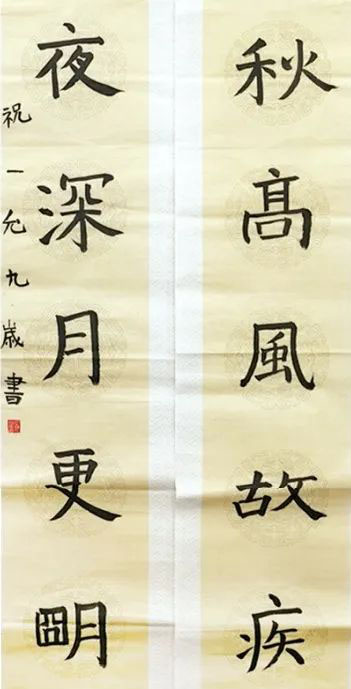 秋髙風故疾
夜深月更朙
祝一允九歲書